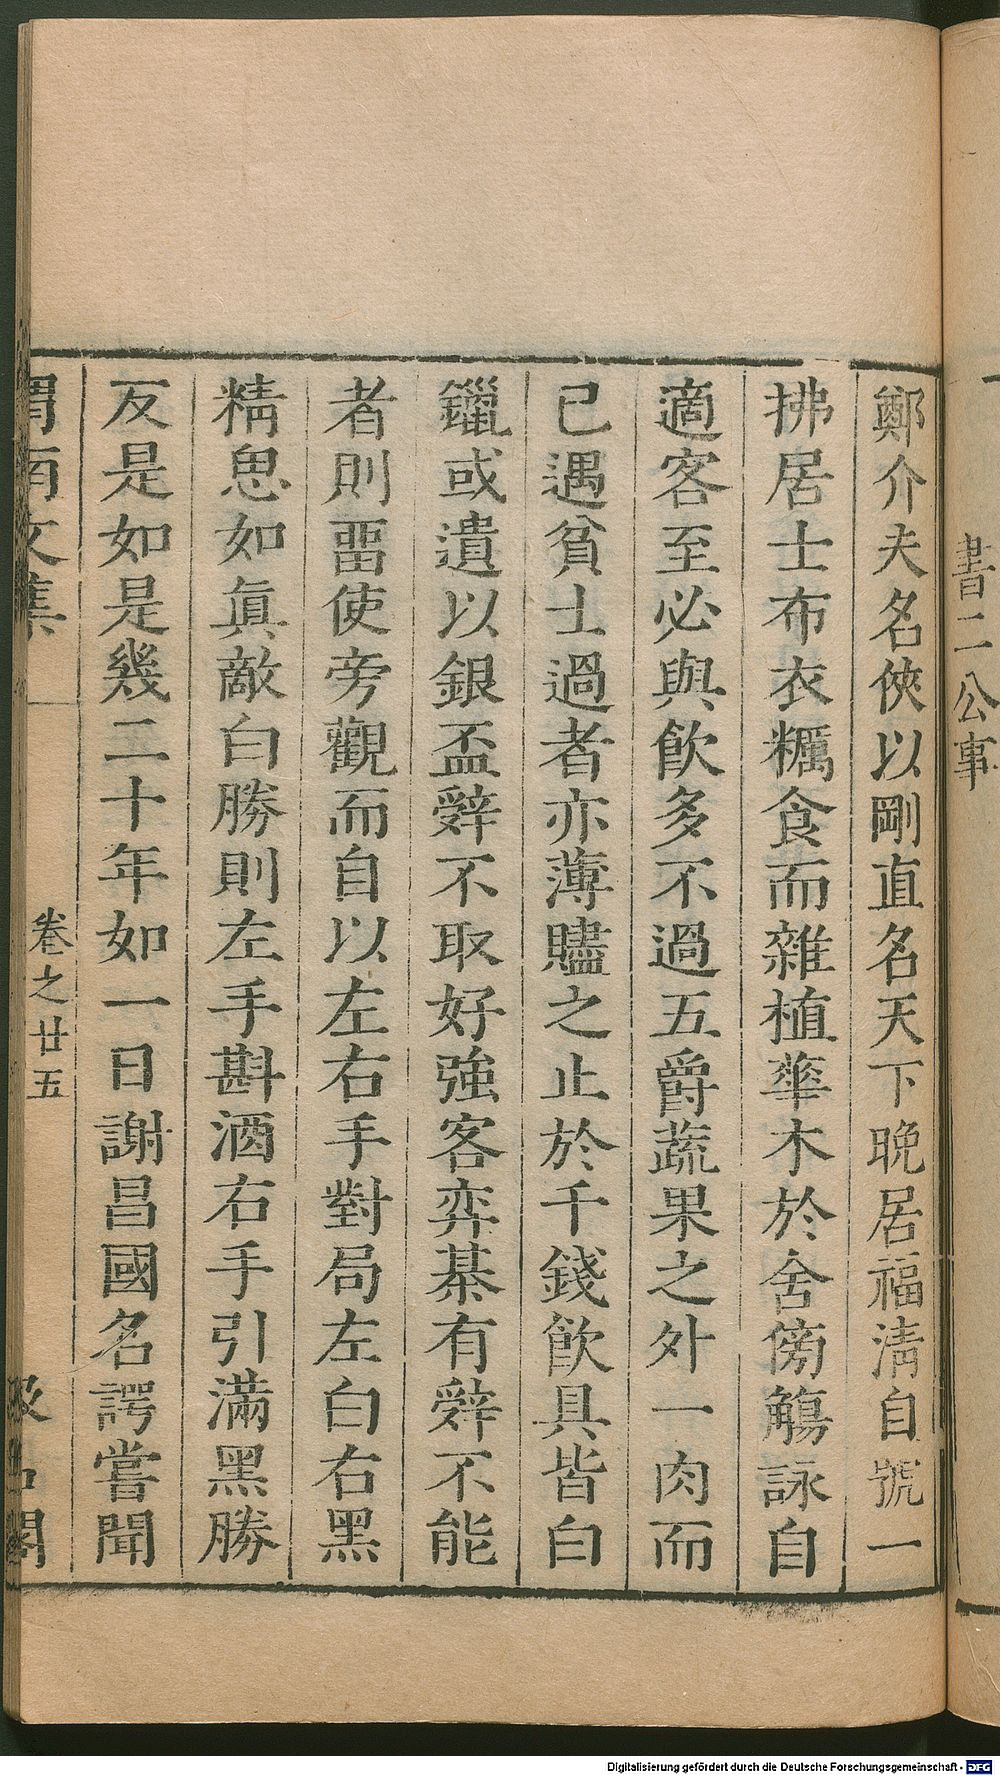 書二公事
鄭介夫名俠以剛直名天下晚居福淸自號一
拂居士布衣糲食而雜植華木於舍傍觴詠自
適客至必與飮多不過五爵蔬果之外一肉而
已遇貧士過者亦薄贐之止於千錢飮具皆白
鑞或遺以銀盃辭不取好強客弈棊有辭不能
者則畱使旁觀而自以左右手對局左白右黑
精思如眞敵白勝則左手斟酒右手引滿黑勝
反是如是幾二十年如一日謝昌國名諤嘗聞
渭南文集
卷之廿五
汲古閣
Digitalisierung gefördert durch die Deutsche Forschungsgemeinschaft - DFG